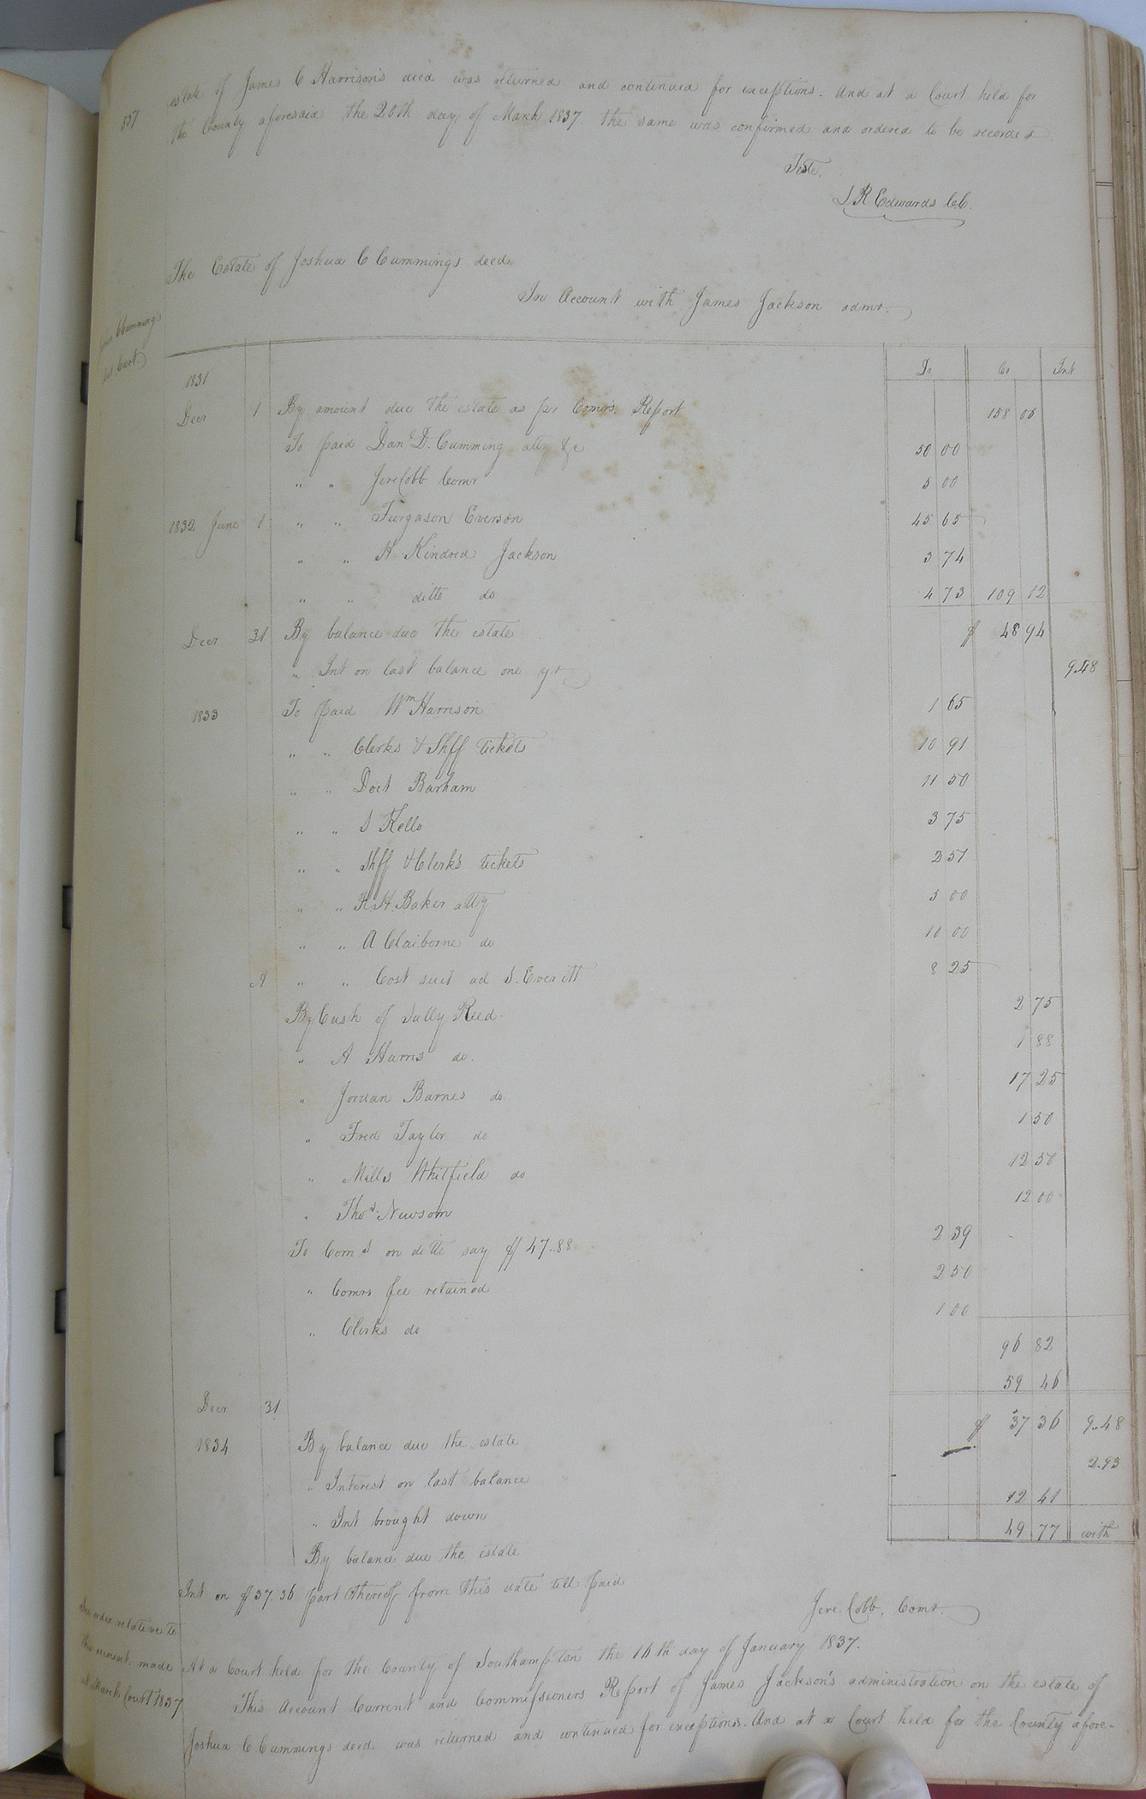 337
estate of James C Harrison's decd was returned and continued for exceptions. And at a Court held for
the County aforesaid the 20th day of March 1837 the same was confirmed and ordered to be recorded
Teste.
L R Edwards CC.
The Estate of Joshua C Cummings decd.
In Account with James Jackson admr.
Cummings
Act Curt
Dr Cr Int
1831
Decr 1 By amount due the estate as per Comrs. Report 158 06
To paid Dan D. Cumming atty &c 50 00
" " Jere Cobb Comr 5 00
1832 June 1 " " Furgason Everson 45 65
" " H Kindred Jackson 3 74
" " ditto do 4 73 109 12
Decr 31 By balance due the estate $ 48 94
" Int on last balance one yr 9.48
1833 To paid Wm Harrison 1 65
" " Clerks & Shff tickets 10 91
" " Doct Barham 11 50
" " S Kello 3 75
" " Shff & Clerk's tickets 2 51
" " R H. Baker atty 5 00
" " A Claiborne do 10 00
" " Cost suit ad S. Everitt 8 25
By Cash of Sally Reed 2 75
" A Harris do. 1 88
" Jordan Barnes do 17 25
" Fred Taylor do 1 50
" Mills Whitfield do 12 50
" Thos. Newsom 12 00
To Coms on ditto say $47.88 2 39
" Comrs fee retained 2 50
" Clerks do 1 00
96 82
59 46
Decr 31 $ 37 36 9.48
1834 By balance due the estate
" Interest on last balance 2.93
" Int brought down 12 41
By balance due the estate 49 77 with
Int on $37.36 part thereof from this date till paid
Jere Cobb, Comr.
See order relative to
this account made
at March Court 1837
At a Court held for the County of Southampton the 16th day of January 1837.
This Account Current and Commissioners Report of James Jackson's administration on the estate of
Joshua C Cummings decd was returned and continued for exceptions. And at a Court held for the County afore-